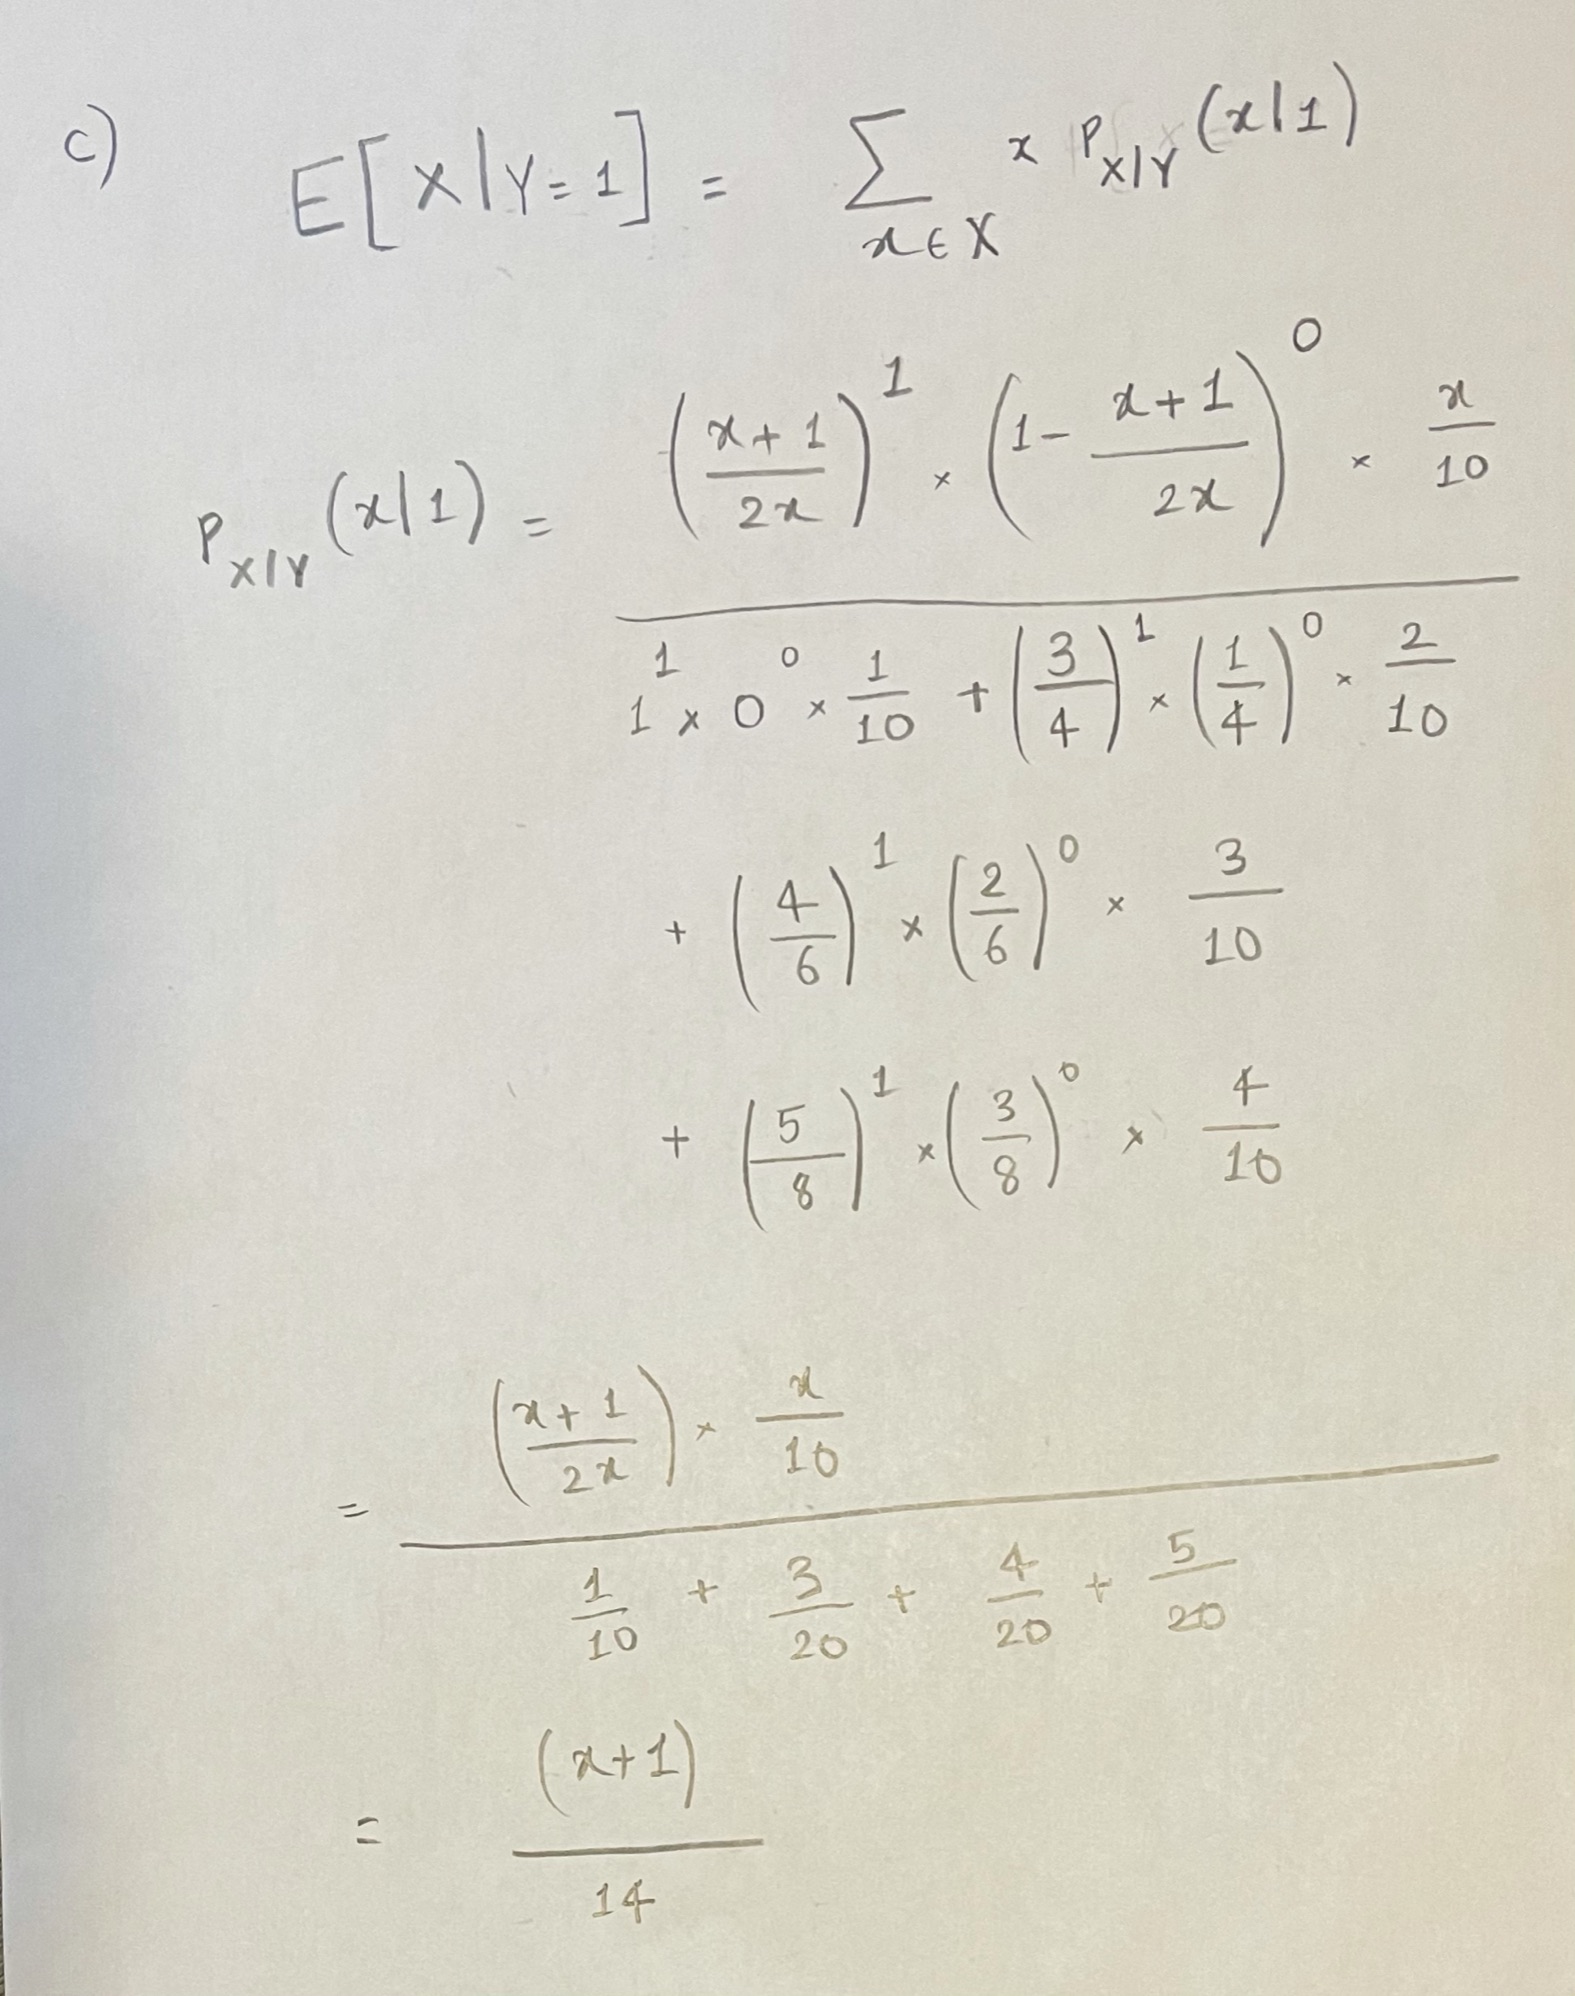 c) E[X|Y=1] = ∑_{x∈X} x P_{X|Y}(x|1)
P_{X|Y}(x|1) = \frac{(\frac{x+1}{2x})^1 × (1-\frac{x+1}{2x})^0 × \frac{x}{10}}{1^1 × 0^0 × \frac{1}{10} + (\frac{3}{4})^1 × (\frac{1}{4})^0 × \frac{2}{10}
+ (\frac{4}{6})^1 × (\frac{2}{6})^0 × \frac{3}{10}
+ (\frac{5}{8})^1 × (\frac{3}{8})^0 × \frac{4}{10}}
= \frac{(\frac{x+1}{2x}) × \frac{x}{10}}{\frac{1}{10} + \frac{3}{20} + \frac{4}{20} + \frac{5}{20}}
= \frac{(x+1)}{14}